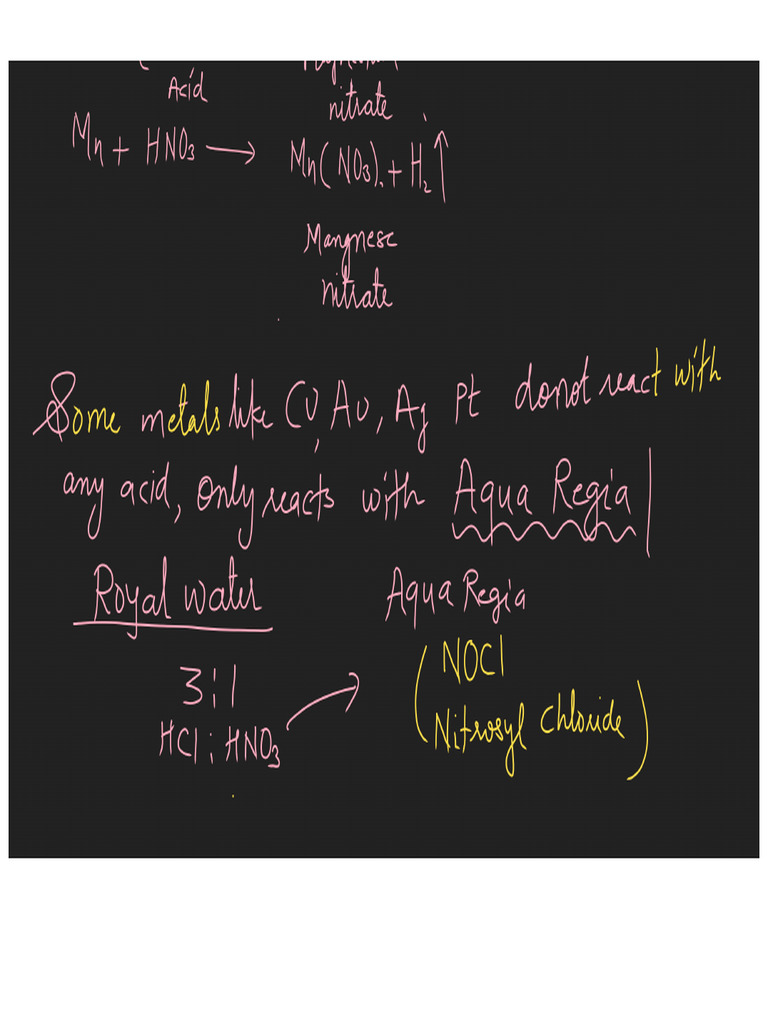 Acid
nitrate
Mn + HNO3 → Mn(NO3)2 + H2 ↑
Mangnese
nitrate
Some metals like CU, AU, Ag Pt donot react with
any acid, only reacts with Aqua Regia
Royal water
Aqua Regia
3:1
HCl : HNO3 →
(NOCl
Nitrosyl Chloride)